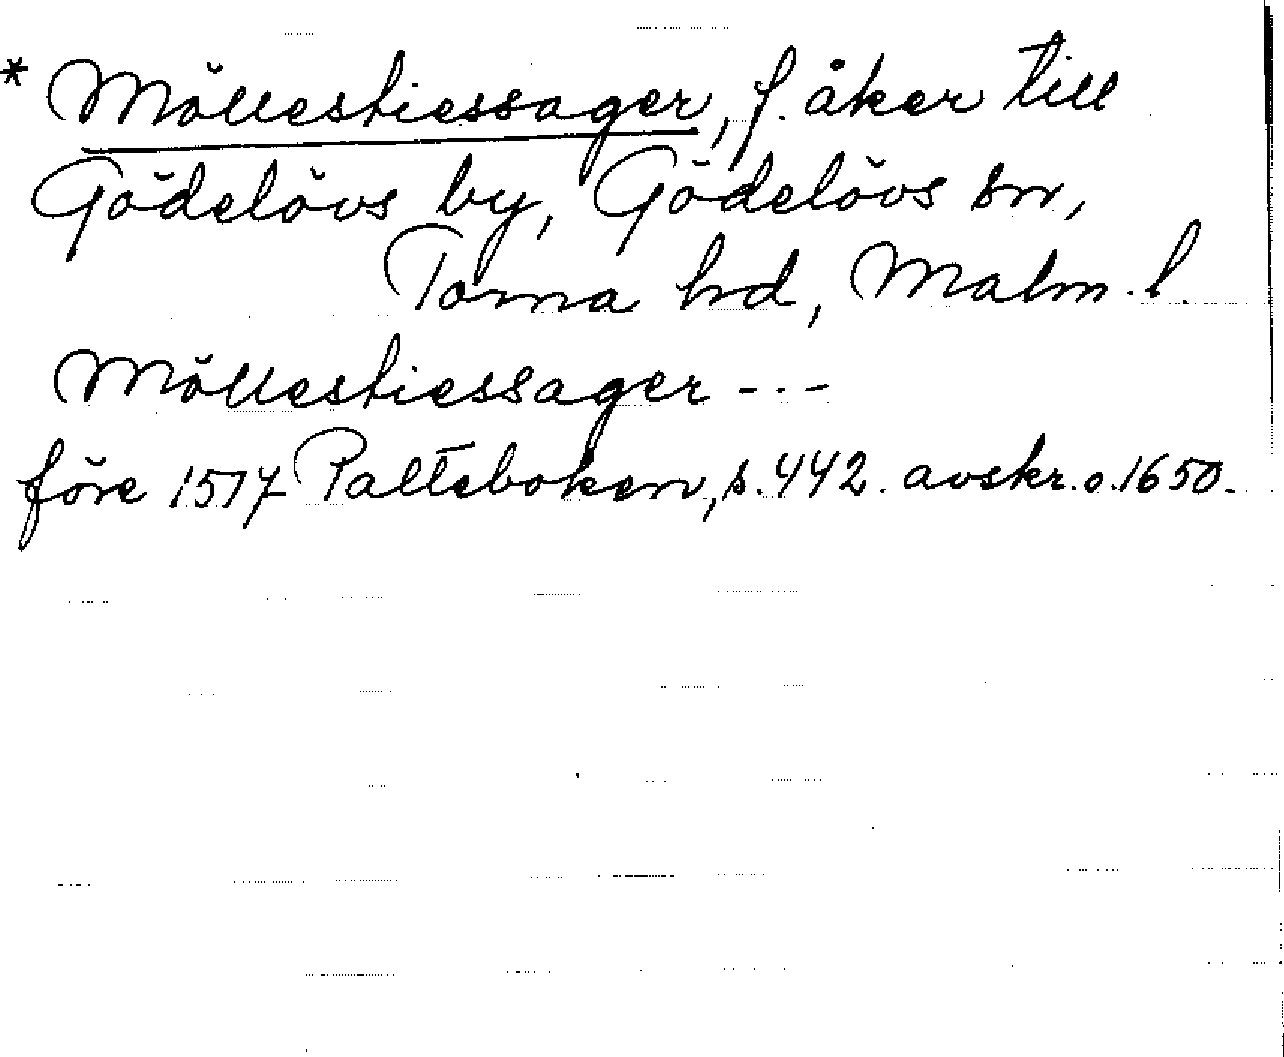 * Möllestiessager, f. åker till
Gödelövs by, Gödelövs sn,
Torna hd, Malm. l.
Möllestiessager - - -
före 1517 Palteboken, s. 442. avskr. o. 1650.